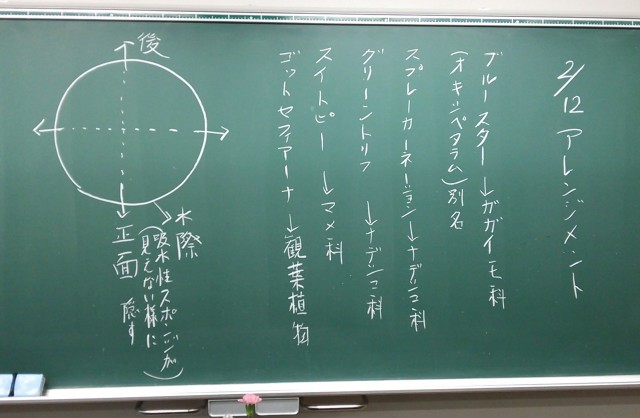 2/12 アレンジメント
ブルースター→ガガイモ科
(オキシペタラム)別名
スプレーカーネーション→ナデシコ科
グリーントリフ →ナデシコ科
スイトピー →マメ科
ゴットセファアーナ→観葉植物
後
正面
水際
吸水性スポンジが
(見えない様に)
隠す